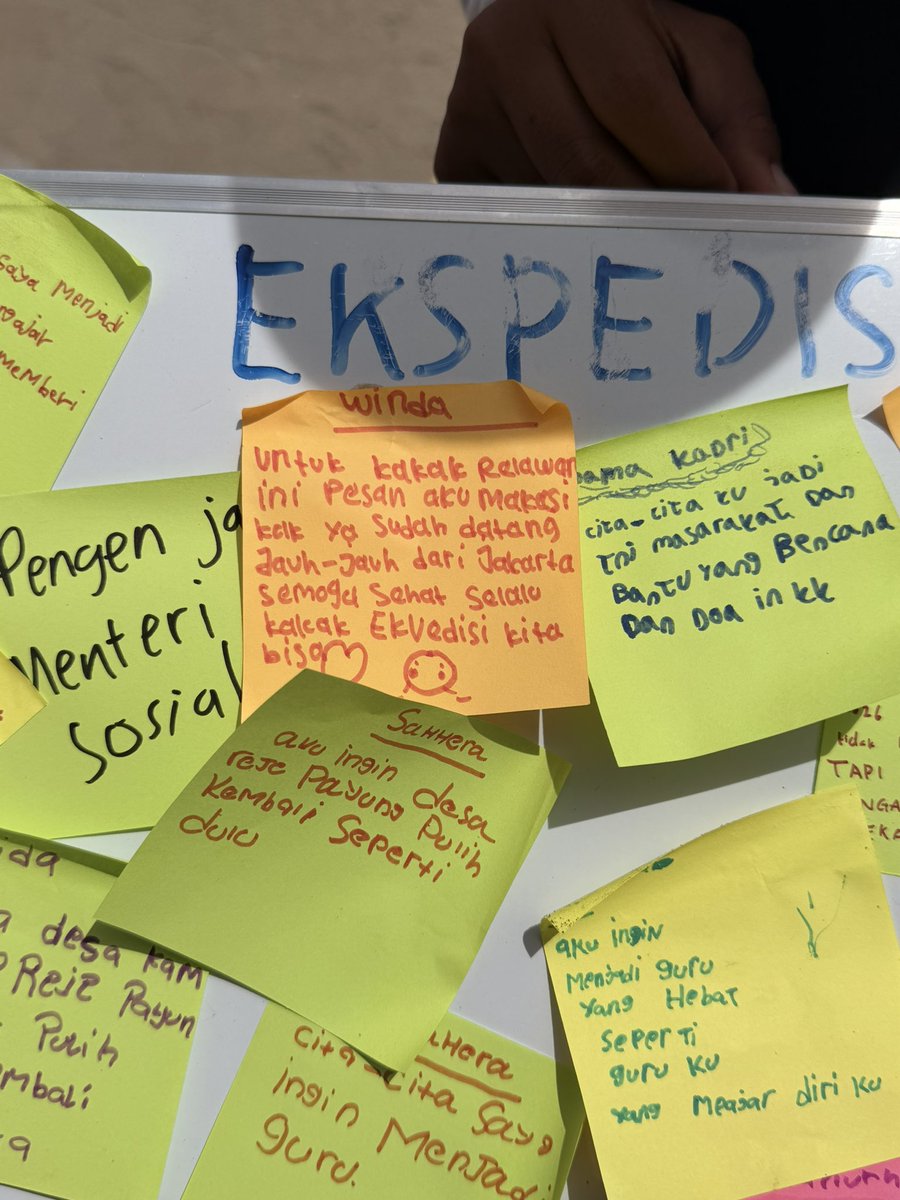 EKSPEDIS
saya menjadi
memberi
winda
untuk kakak Relawan
ini Pesan aku Makasi
kak ya sudah datang
Jauh-Jauh dari Jakarta
semoga sehat selalu
kakak EkVedisi kita
bisa
nama kadri
cita-cita ku jadi
Tni masarakat Dan
Bantu yang Bencana
Dan Doa in kk
Pengen ja
Menteri
Sosial
Sahhera
aku ingin desa
reje Payung Pulih
Kembali Seperti
dulu
tidak
TAPI
desa kam
Reje Payun
Pulih
embali
aku ingin
Menjadi guru
yang Hebat
seperti
guru ku
yang Meajar diri ku
hhera
Cita-Cita Saya
ingin Menjadi
guru.